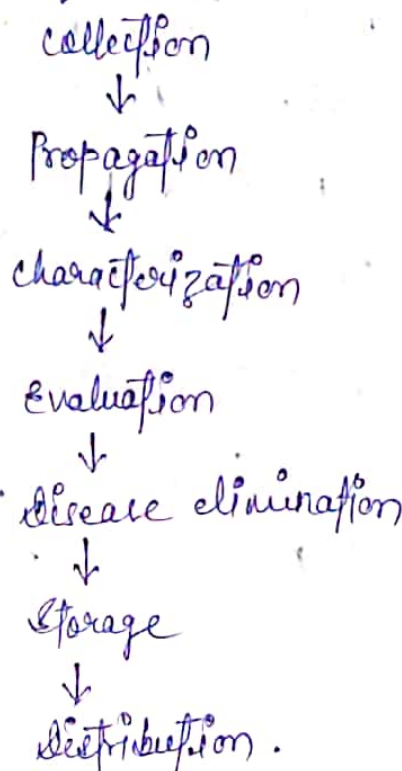 Collection
↓
Propagation
↓
Characterization
↓
Evaluation
↓
Disease elimination
↓
Storage
↓
Distribution.